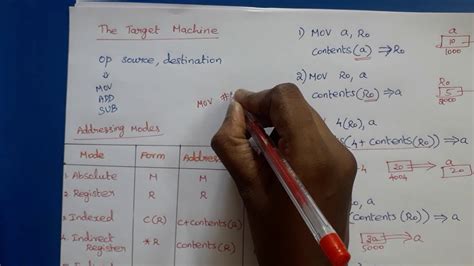 The Target Machine
op source, destination
MOV
ADD
SUB
MOV #
Addressing Modes
Mode Form Address
1. Absolute M M
2. Register R R
3. Indexed c(R) c+contents(R)
4. Indirect Register *R contents(R)
5. Indexed
1) MOV a, R0
contents(a) ⇒ R0
a
10
1000
2) MOV R0, a
contents(R0) ⇒ a
5
4(R0), a
(4 + contents(R0)) ⇒ a
20
4004
a
20
, a
(R0)) ⇒ a
20
5000